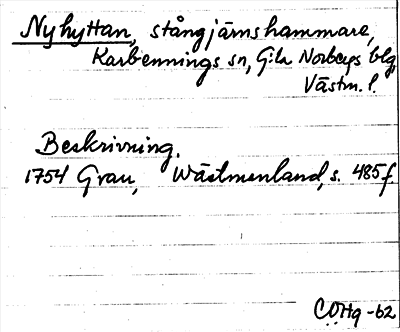 Nyhyttan, stångjärnshammare,
Karbennings sn, G:la Norbergs blg,
Västm. l.
Beskrivning.
1754 Grau, Wästmenland, s. 485 f.
COHg -62